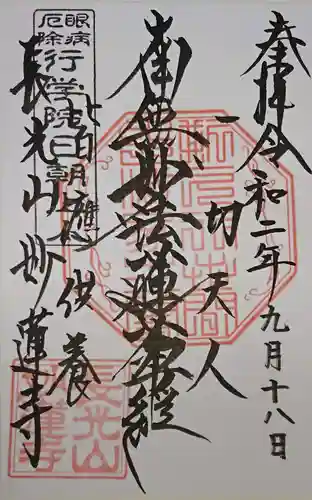 奉拝 令和二年九月十八日
一切天人
南無妙法蓮華経
皆應供養
眼病
厄除
行学院日朝上人
長光山 妙蓮寺
長光山
妙蓮寺